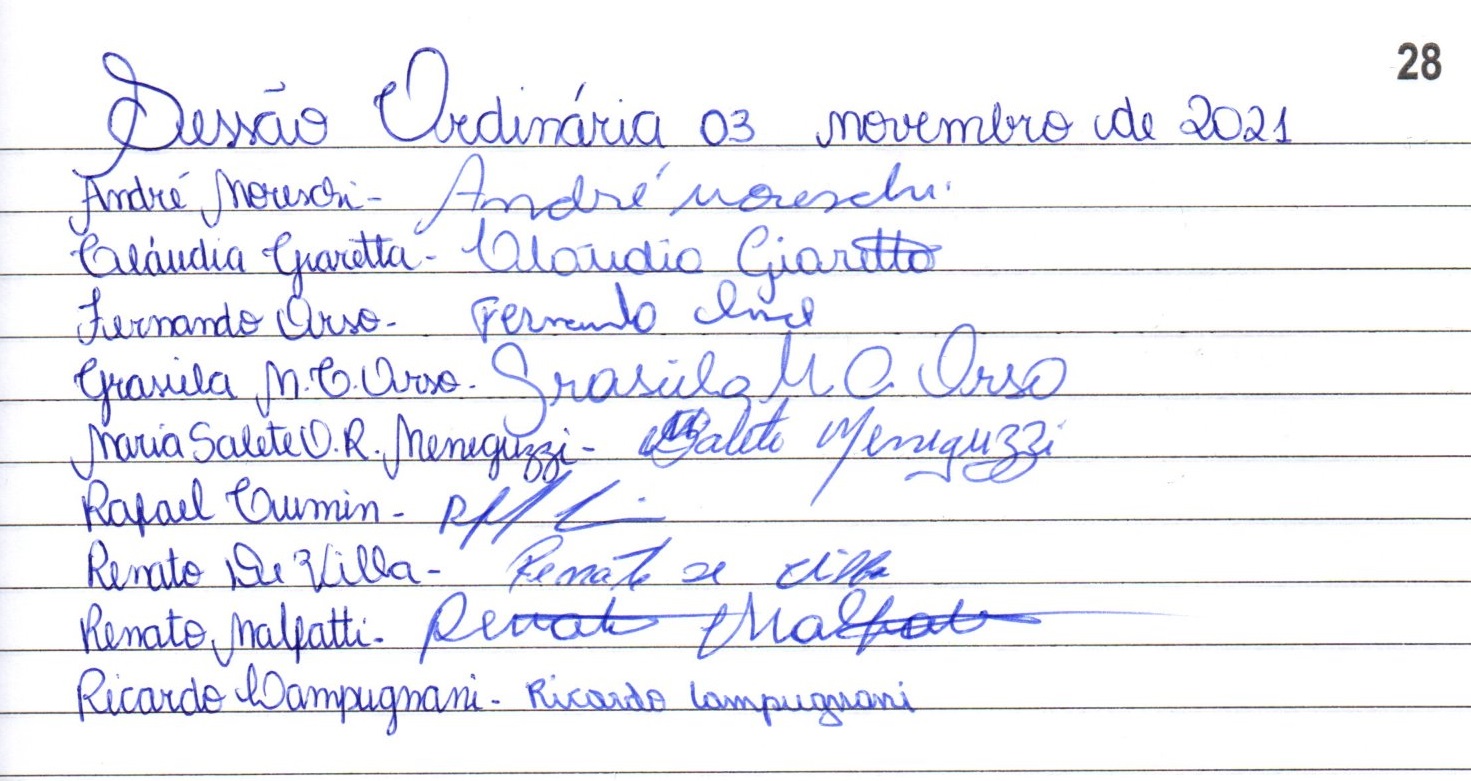 28
Sessão Ordinária 03 novembro de 2021
André Moreschi - André Moreschi
Cláudia Giaretta - Claudia Giaretta
Fernando Orso - Fernando
Grasiela M. C. Orso - Grasiela M C Orso
Maria Salete O. R. Meneguzzi - Salete Meneguzzi
Rafael -
Renato De Villa - Renato de villa
Renato Malfatti - Renato Malfatti
Ricardo Campugnani - Ricardo Campugnani